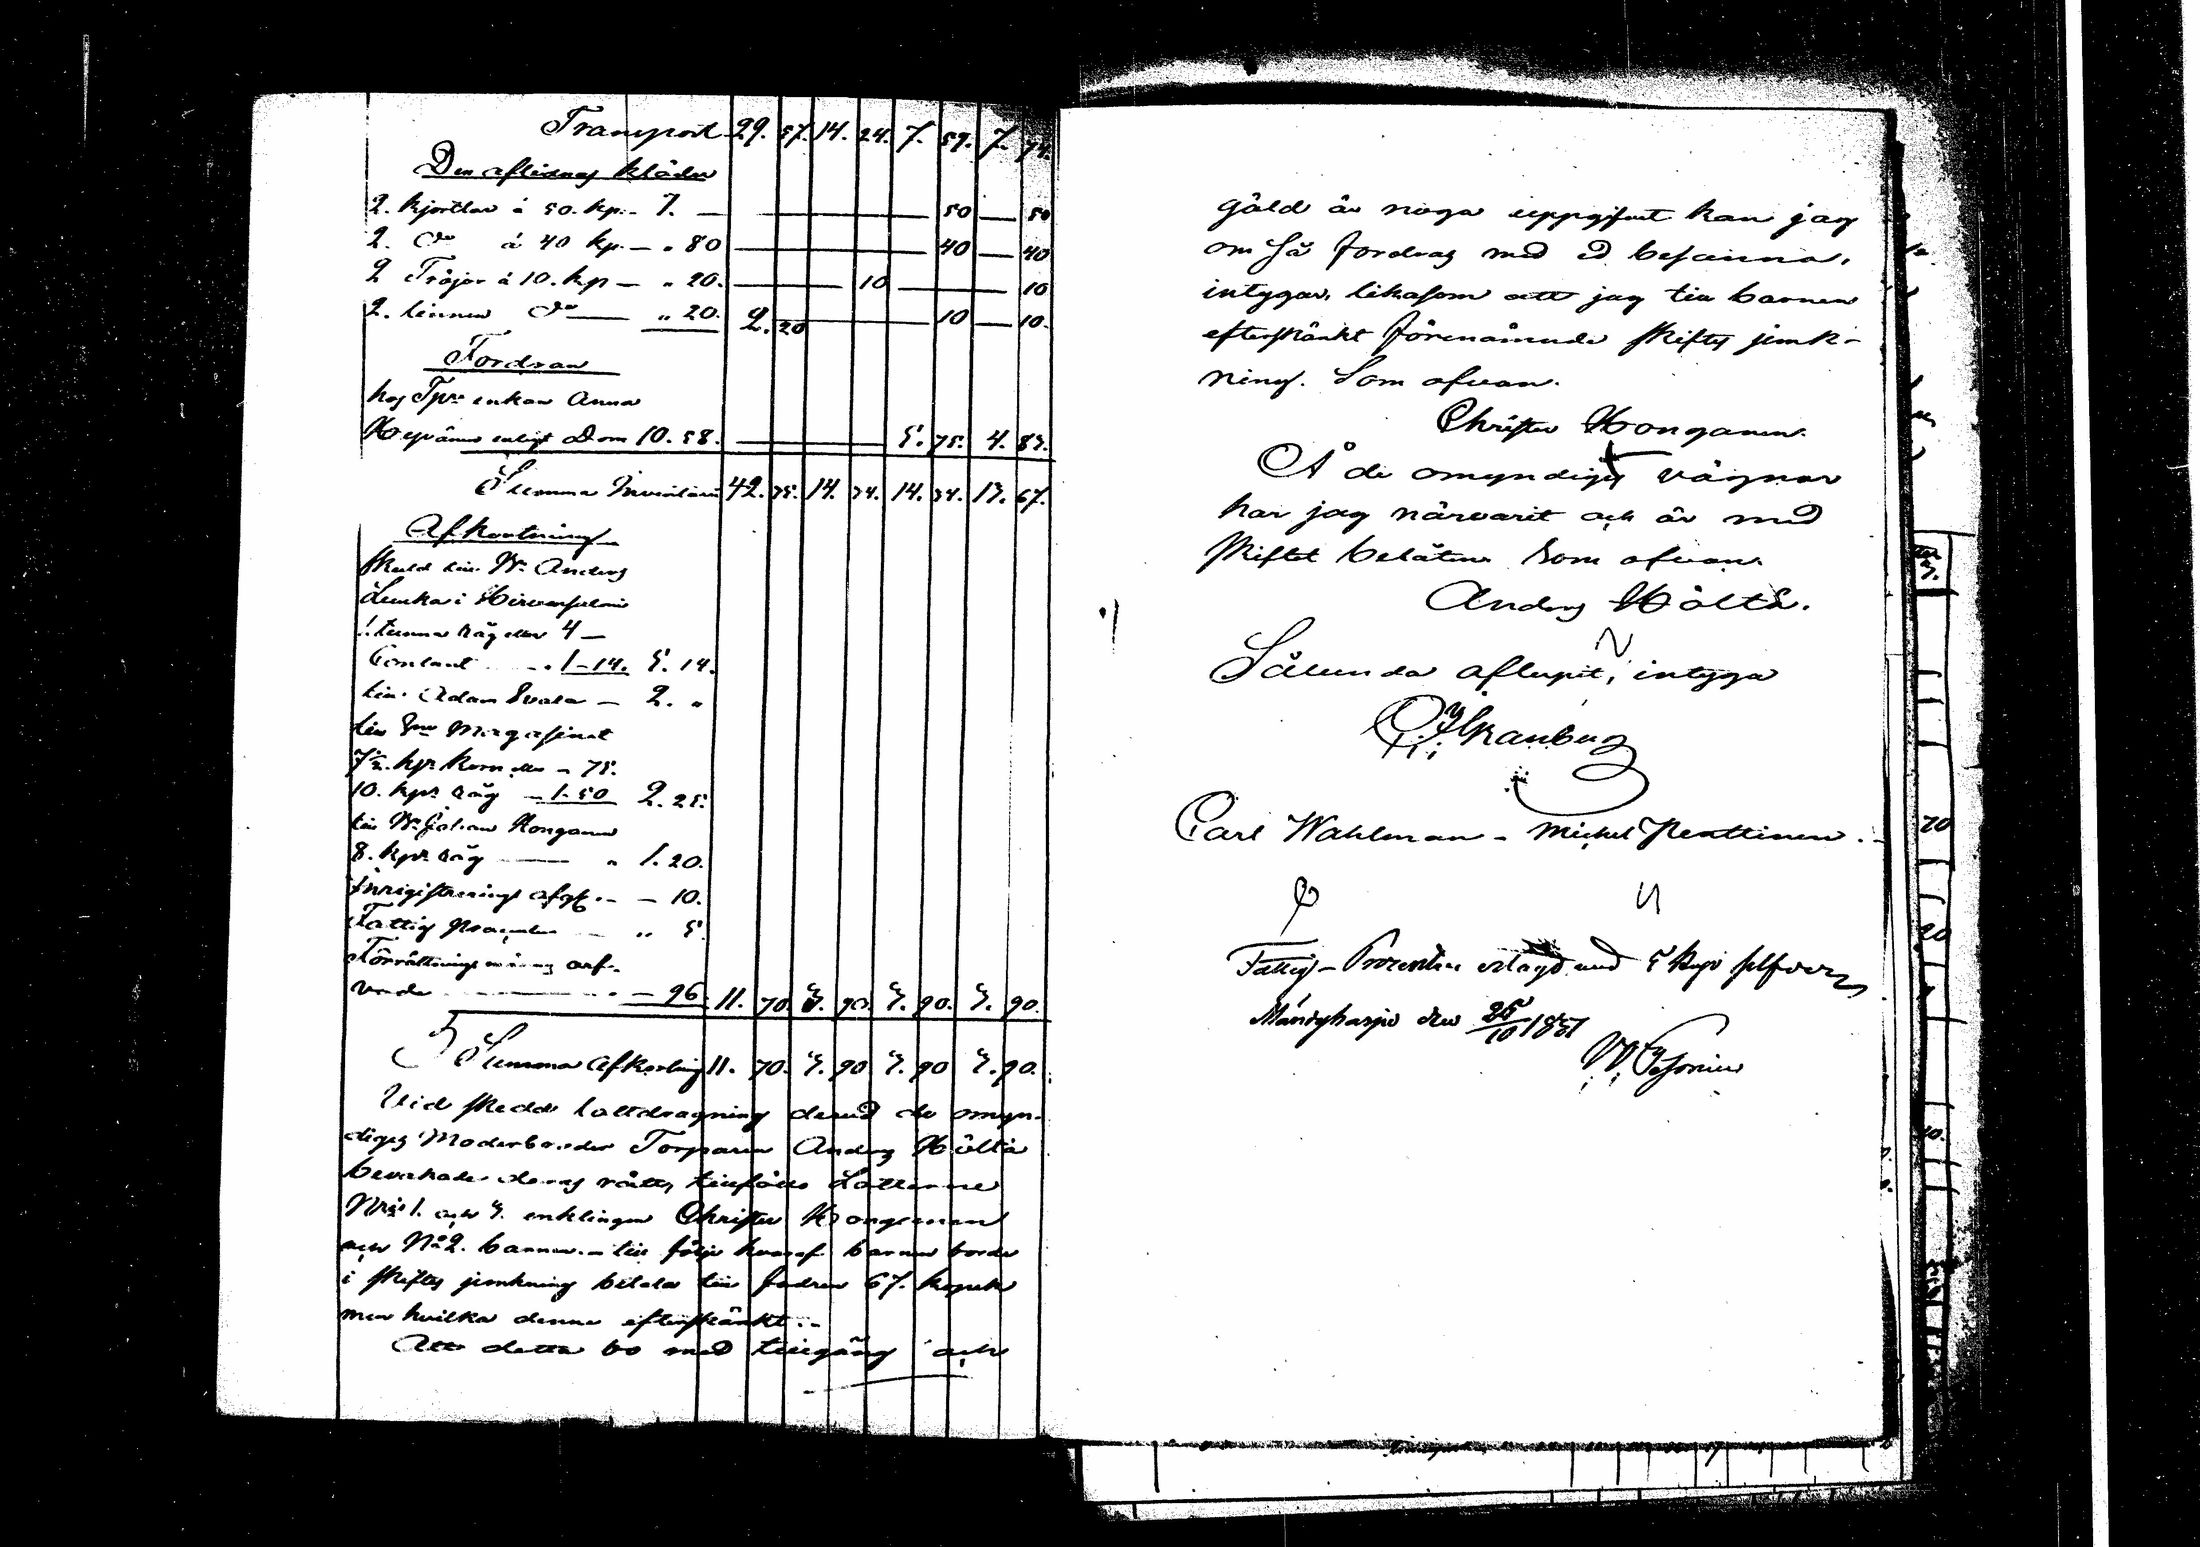 Transport 29. 57. 14. 24. 7. 59. 7. 74.
Den aflidnes kläder
2. kjortlar á 50. kp. - 1. — 50 — 50
2. do á 40 kp. — " 80 — 40 — 40
2 Tröjor á 10. kp — " 20. — 10 — 10
2. linnen do — " 20. 2. 20 — 10 — 10.
Fordran
hos Tprenkan Anna
enligt Dom 10. 58. — 5. 75. 4. 83.
Summa Inventarii 42. 75. 14. 34. 14. 34. 13. 67.
Afkortning
Skuld till Bn Anders
Lunka i Hirvensalmi
1. tunna råg eller 4 —
Contant — . 1 - 14. 5. 14.
till Adam — 2. "
till Magasinet
7½. kpr korn eller - 75.
10. kpr råg - 1. 50 2. 25.
till Bn Johan Konganen
8. kpr råg — " 1. 20.
Inregistrerings afgft. — 10.
Fattig procenten — " 5.
Förrättningsmännens arf-
vode — — 96. 11. 70. 3. 90. 3. 90. 3. 90.
Summa Afkortning 11. 70. 3. 90 3. 90 3. 90.
Vid skedd lottdragning dervid de omyn-
diges Moderbroder Torparen Anders Höltä
bevakade deras rätt, tillföllo Lotterne
Nris 1. och 3. enklingen Christer Konganen
och No 2. barnen. - till följe hvaraf barnen borde
i skiftes jemkning betala till fadren 67. kopek
men hvilka denne efterskänkt. -
Att detta bo med tillgång och
gäld är noga uppgifvit kan jag
om så fordras med ed besanna,
intygar, likasom att jag till barnen
efterskänkt förenämnde skiftes jemk-
ning. Som ofvan.
Christer Konganen.
Å de omyndiges vägnar
har jag närvarit och är med
skiftet belåten. Som ofvan.
Anders Höltä.
Sålunda aflupit, intyga
Carl Wahlman - Michel Penttinen. -
Fattig-Procenten erlagd med 5 Kop silfver
Mäntyharju den 25/10 1851